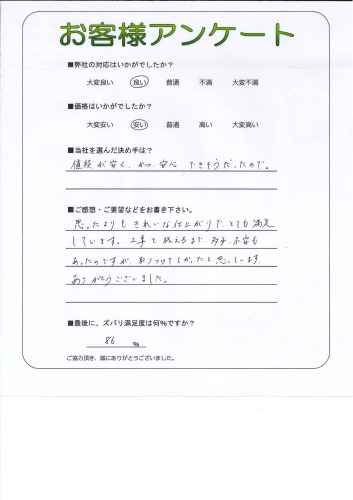 お客様アンケート
■弊社の対応はいかがでしたか？
大変良い 良い 普通 不満 大変不満
■価格はいかがでしたか？
大変安い 安い 普通 高い 大変高い
■当社を選んだ決め手は？
値段が安く、かつ、安心できそうだったので。
■ご感想・ご要望などをお書き下さい。
思ったよりもきれいな仕上がりで、とても満足
しています。工事を終えるまで、多少不安も
あったのですが、取りつけてよかったと思っています
ありがとうございました。
■最後に、ズバリ満足度は何%ですか？
86 %
ご協力頂き、誠にありがとうございました。